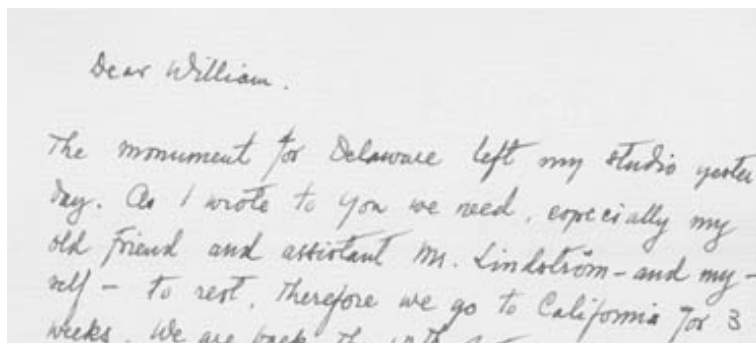 Dear William.
The monument for Delaware left my studio yester
day. As I wrote to you we need, especially my
old friend and assistant Mr. Lindström – and my –
self – to rest, therefore we go to California for 3
weeks. We are back the